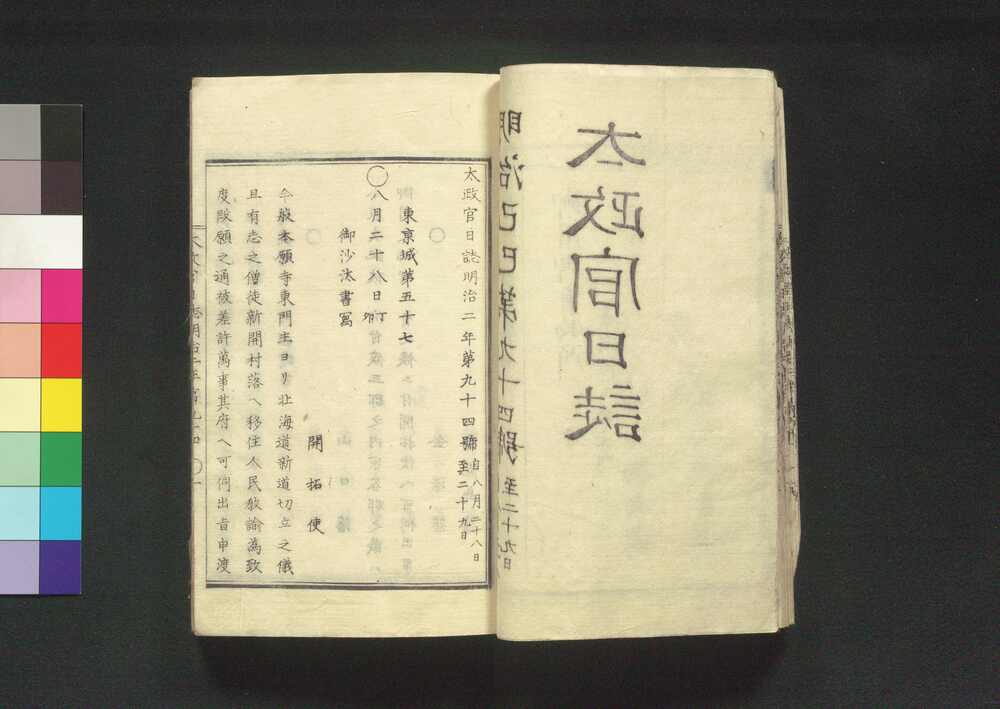 太政官日誌
明治己巳第九十四號 至二十九日
太政官日誌明治二年第九十四號 自八月二十八日至二十九日
東京城第五十七
〇八月二十八日丁卯
御沙汰書寫
開拓使
今般本願寺東門主ヨリ北海道新道切立之儀
且有志之僧徒新開村落ヘ移住人民教諭為致
度段願之通被差許萬事其府ヘ可伺出旨申渡